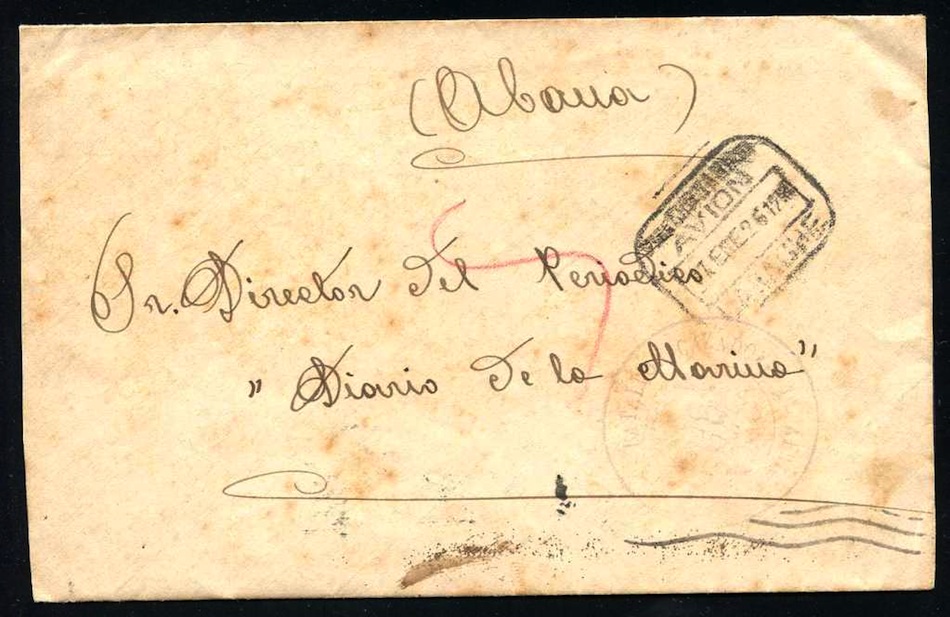 (Abana)
Sr. Director del Periodico
" Diario de la Marina"
AVION
ENE 26 12